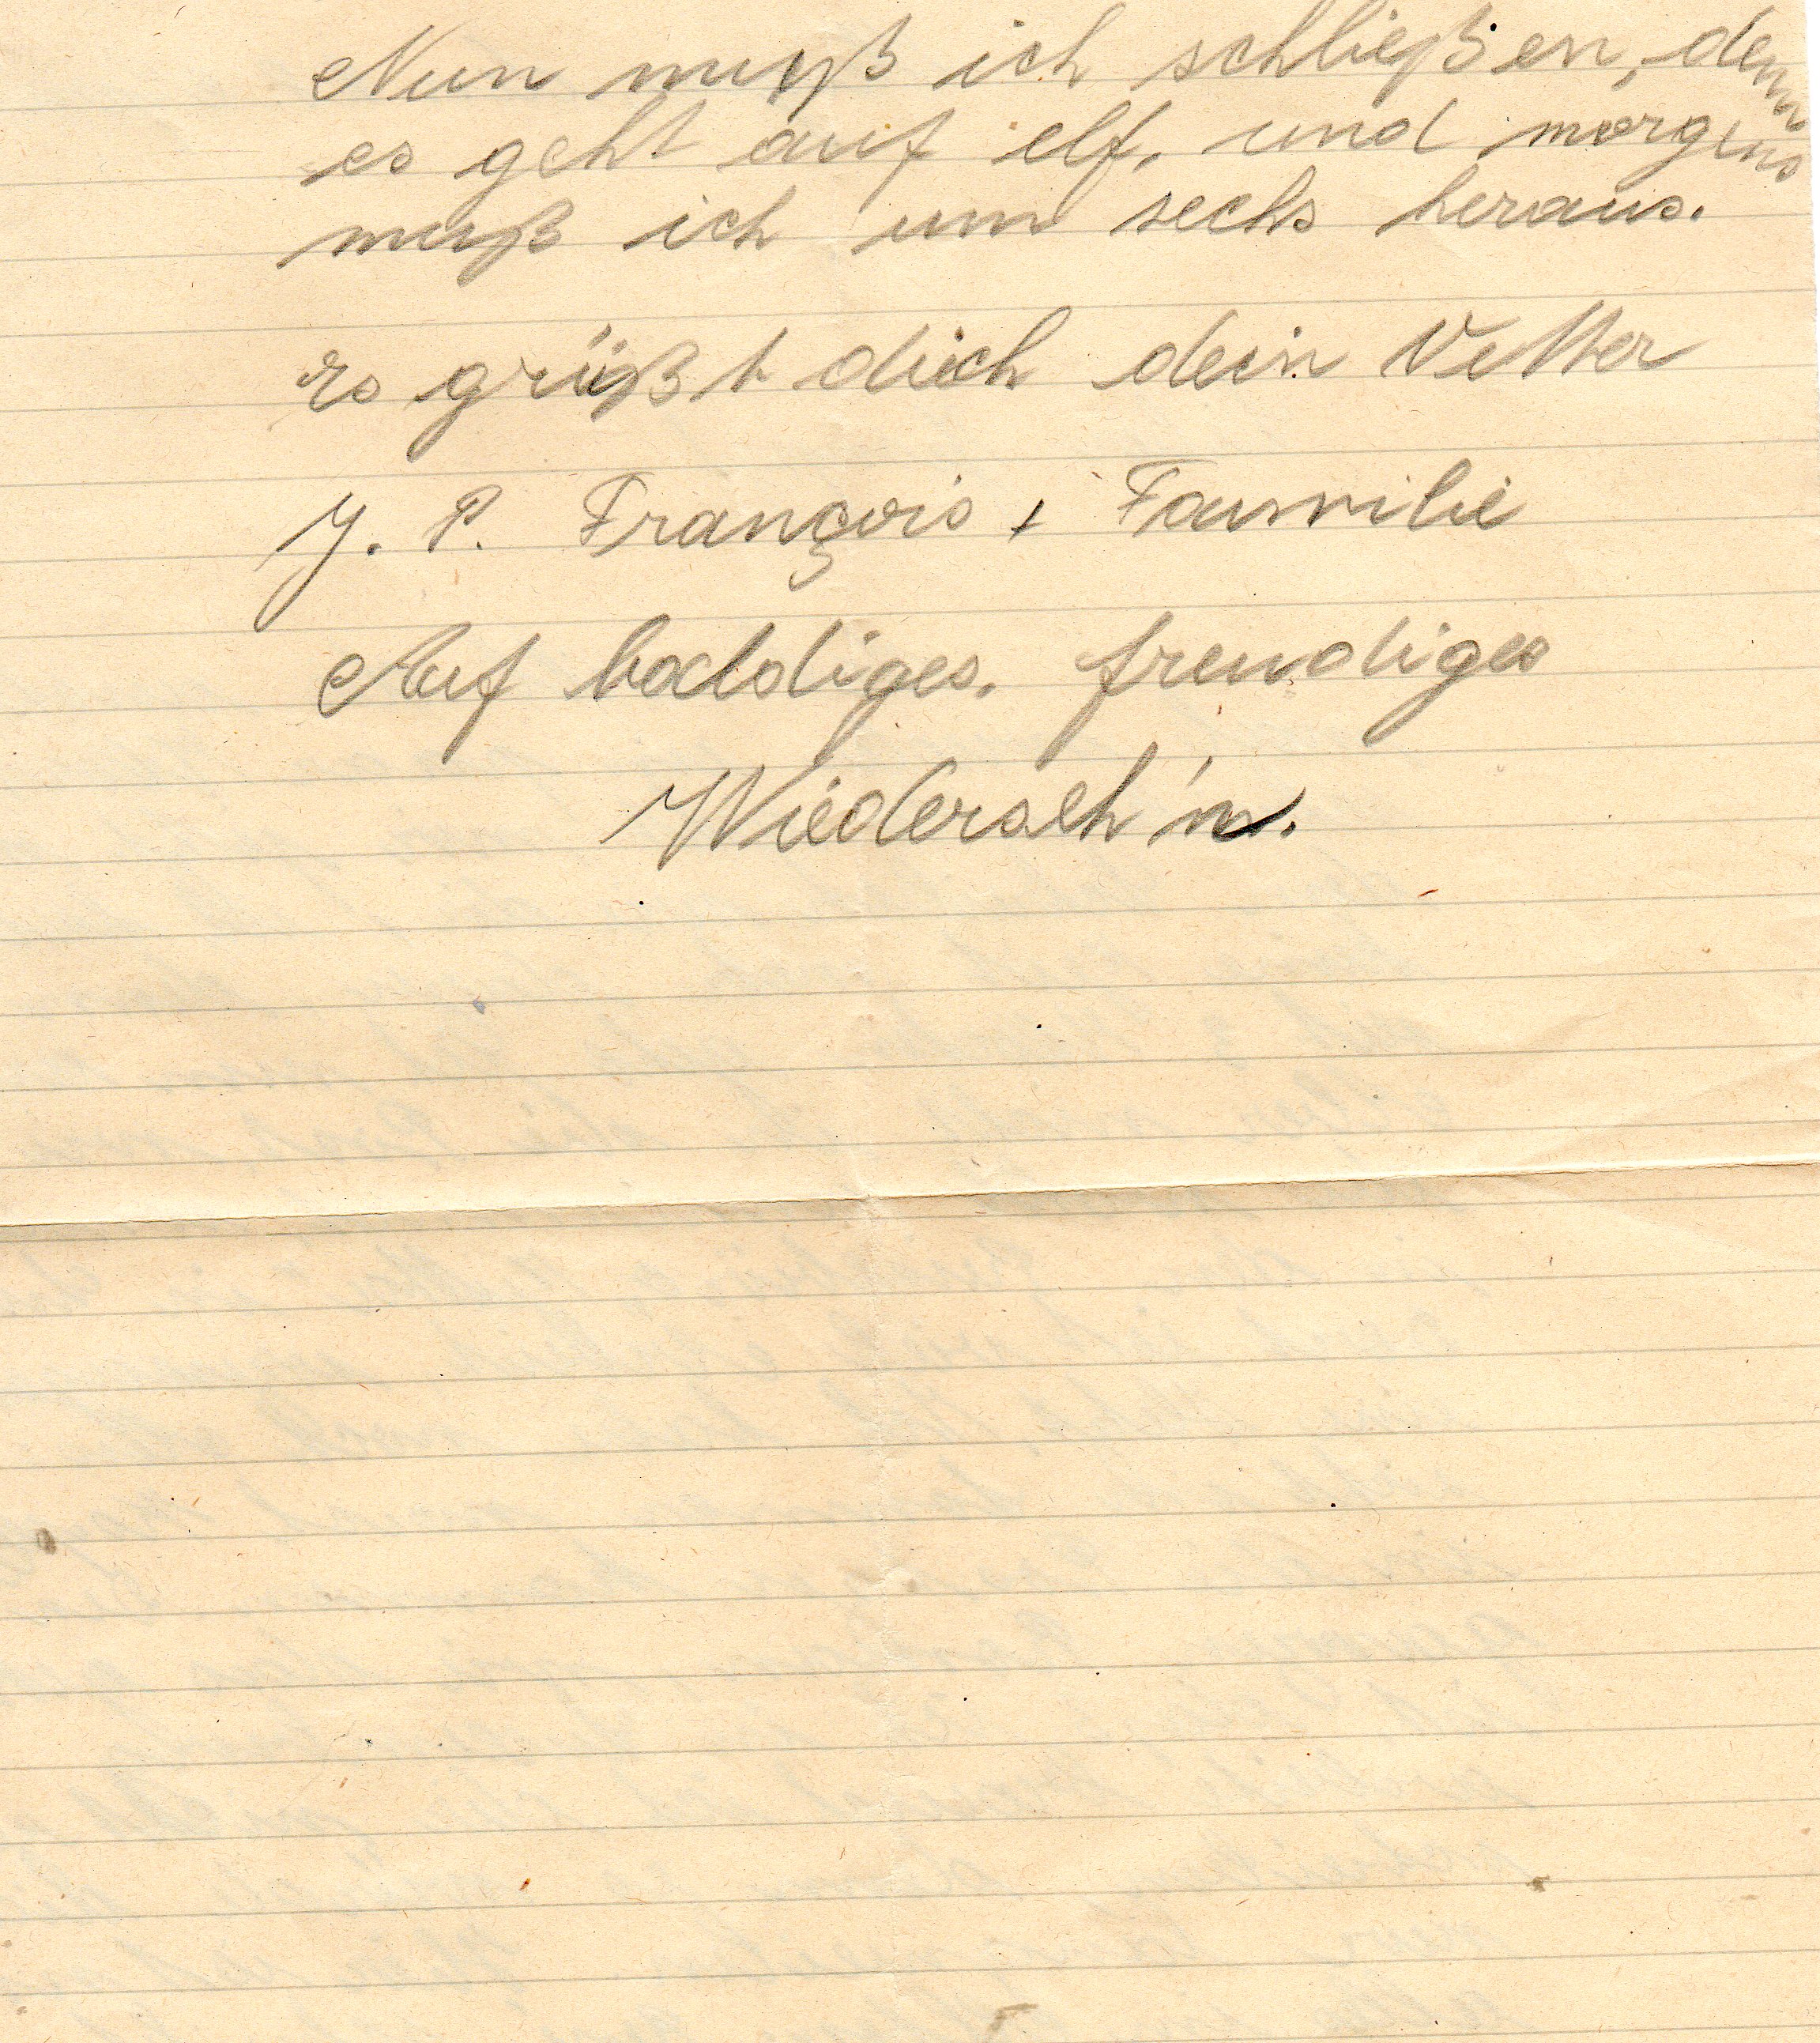 Nun muß ich schließen, denn
es geht auf elf, und morgens
muß ich um sechs heraus.
Es grüßt dich dein Vetter
J. P. François + Familie
Auf baldiges, freudiges
Wiederseh'n.